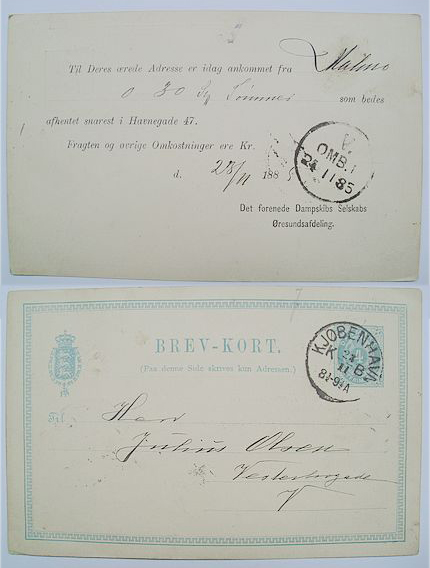 Til Deres ærede Adresse er idag ankommet fra Malmø
som bedes
afhentet snarest i Havnegade 47.
Fragten og øvrige Omkostninger ere Kr.
d. 23/11 1885
V.
OMB.1
24 11 85
Det forenede Dampskibs Selskabs
Øresundsafdeling.
BREV-KORT.
(Paa denne Side skrives kun Adressen.)
KJØBENHAVN
K. B.
24
11
Til
Herr
Julius Olsen
Vesterbrogade
V